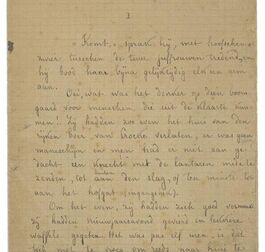 3
"Komt," sprak hij, met hoofschen
zwier tusschen de twee juffrouwen tredend, en
hij bood haar bijna gelijktijdig elk een arm
aan.
Oei, wat was het donker op dien boom-
gaard voor menschen die uit de klaarte kwa-
men! Zij hadden zoo even het huis van den
rijken boer van Crocke verlaten, er was geen
maneschijn en men had er niet aan ge-
dacht een knecht met de lantaren mede te
zenden, tot aan den slag, of ten minste tot
aan het hofgat
Om het even, zij hadden zich goed vermaakt
zij hadden nieuwjaarsavond gevierd en lekkere
wafels gegeten. Het was pas elf uren, is het